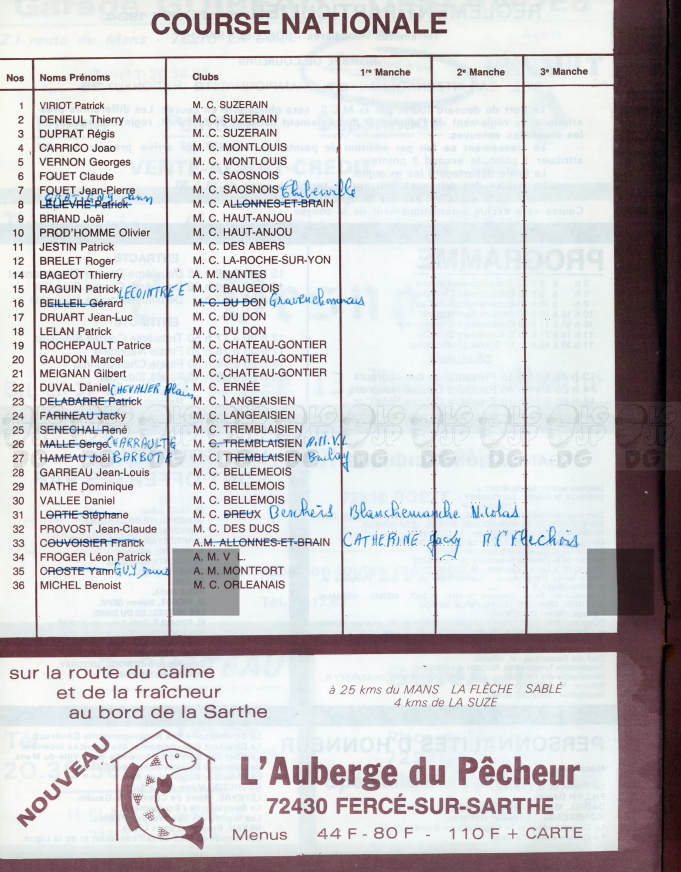 COURSE NATIONALE
Nos Noms Prénoms Clubs 1re Manche 2e Manche 3e Manche
1 VIRIOT Patrick M. C. SUZERAIN
2 DENIEUL Thierry M. C. SUZERAIN
3 DUPRAT Régis M. C. SUZERAIN
4 CARRICO Joao M. C. MONTLOUIS
5 VERNON Georges M. C. MONTLOUIS
6 FOUET Claude M. C. SAOSNOIS
7 FOUET Jean-Pierre M. C. SAOSNOIS
8 LELIEVRE Patrick M. C. ALLONNES-ET-BRAIN
9 BRIAND Joël M. C. HAUT-ANJOU
10 PROD'HOMME Olivier M. C. HAUT-ANJOU
11 JESTIN Patrick M. C. DES ABERS
12 BRELET Roger M. C. LA-ROCHE-SUR-YON
14 BAGEOT Thierry A. M. NANTES
15 RAGUIN Patrick M. C. BAUGEOIS
16 BEILLEIL Gérard LECOINTRE E M. C. DU DON
17 DRUART Jean-Luc M. C. DU DON
18 LELAN Patrick M. C. DU DON
19 ROCHEPAULT Patrice M. C. CHATEAU-GONTIER
20 GAUDON Marcel M. C. CHATEAU-GONTIER
21 MEIGNAN Gilbert M. C. CHATEAU-GONTIER
22 DUVAL Daniel M. C. ERNÉE
23 DELABARRE Patrick CHEVALIER Alain M. C. LANGEAISIEN
24 FARINEAU Jacky M. C. LANGEAISIEN
25 SENECHAL René M. C. TREMBLAISIEN
26 MALLE Serge CHARRAULT G M. C. TREMBLAISIEN A.M.V.L
27 HAMEAU Joël BARBOT M. C. TREMBLAISIEN
28 GARREAU Jean-Louis M. C. BELLEMEOIS
29 MATHE Dominique M. C. BELLEMOIS
30 VALLEE Daniel M. C. BELLEMOIS
31 LORTIE Stéphane M. C. DREUX Blanchemanche Nicolas
32 PROVOST Jean-Claude M. C. DES DUCS
33 COUVOISIER Franck A.M. ALLONNES-ET-BRAIN CATHERINE Jacky M C Flechois
34 FROGER Léon Patrick A. M. V L.
35 CROSTE Yann GUY A. M. MONTFORT
36 MICHEL Benoist M. C. ORLEANAIS
sur la route du calme
et de la fraîcheur
au bord de la Sarthe
à 25 kms du MANS LA FLÈCHE SABLÉ
4 kms de LA SUZE
NOUVEAU
L'Auberge du Pêcheur
72430 FERCÉ-SUR-SARTHE
Menus 44 F - 80 F - 110 F + CARTE